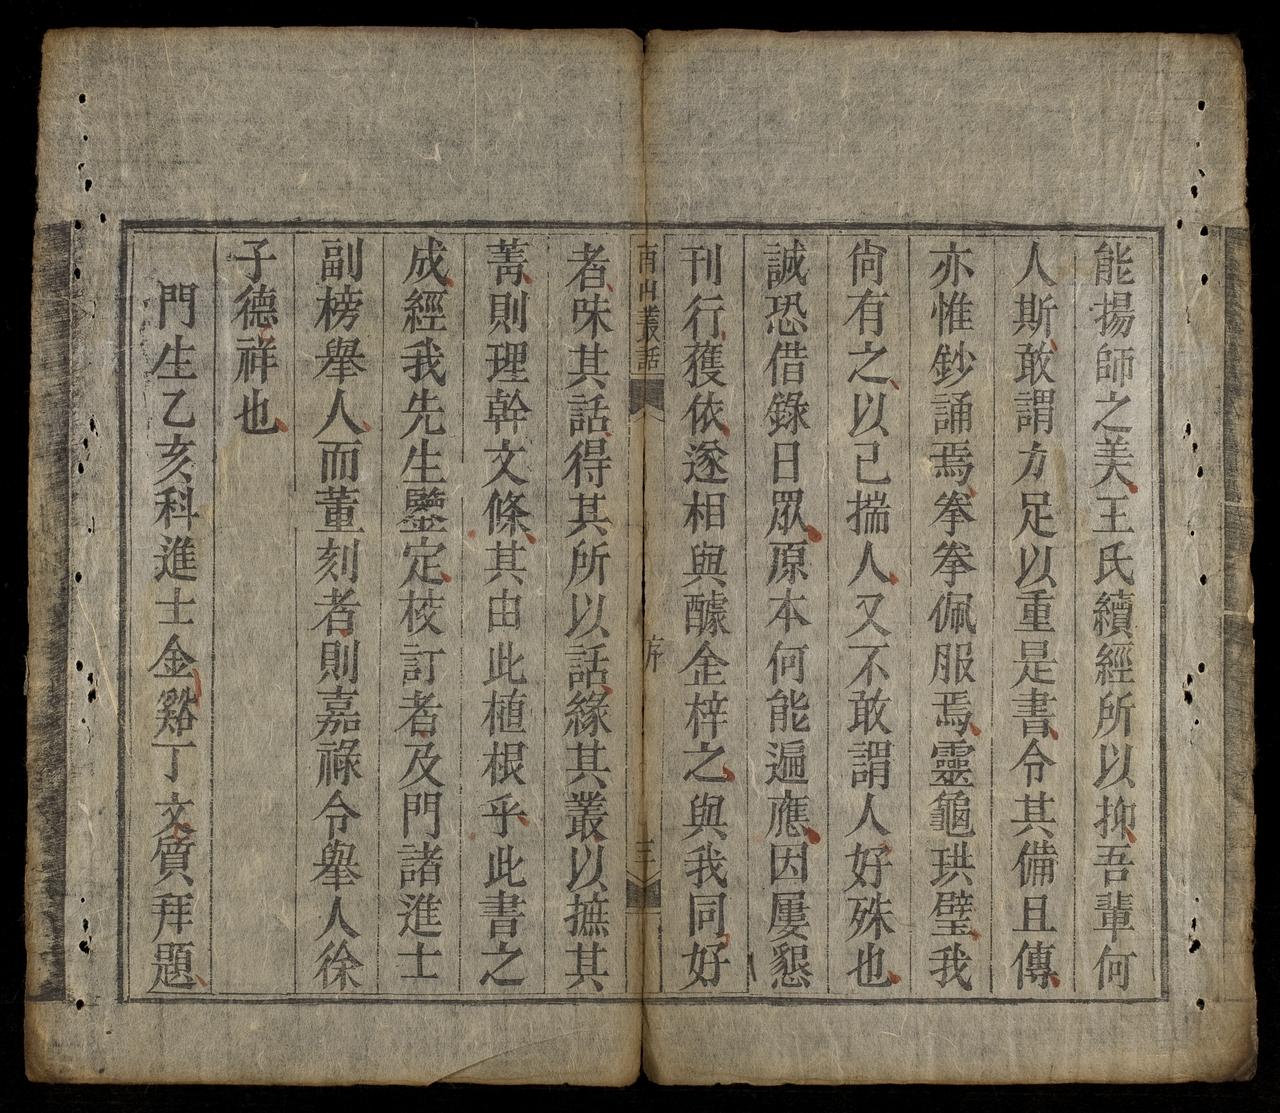 能揚師之美王氏續經所以抑吾輩何
人斯敢謂力足以重是書令其備且傳
亦惟鈔誦焉拳拳佩服焉靈龜珙璧我
尙有之以己揣人又不敢謂人好殊也
誠恐借錄日眾原本何能遍應因屢懇
刊行獲依遂相與醵金梓之與我同好
南山叢話
序
三
者味其話得其所以話緣其叢以摭其
菁則理幹文條其由此植根乎此書之
成經我先生鑒定校訂者及門諸進士
副榜舉人而董刻者則嘉祿令舉人徐
子德祥也
門生乙亥科進士金谿丁文質拜題